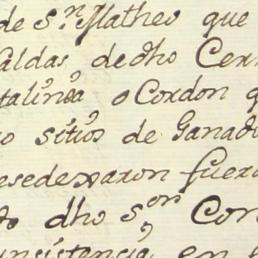 de Sⁿ. Matheo que
aldas, de dho Cer
o Cordon q
o sitios de Ganad
esedexaron fuera
dho Sᵒʳ Cor
insistencia en